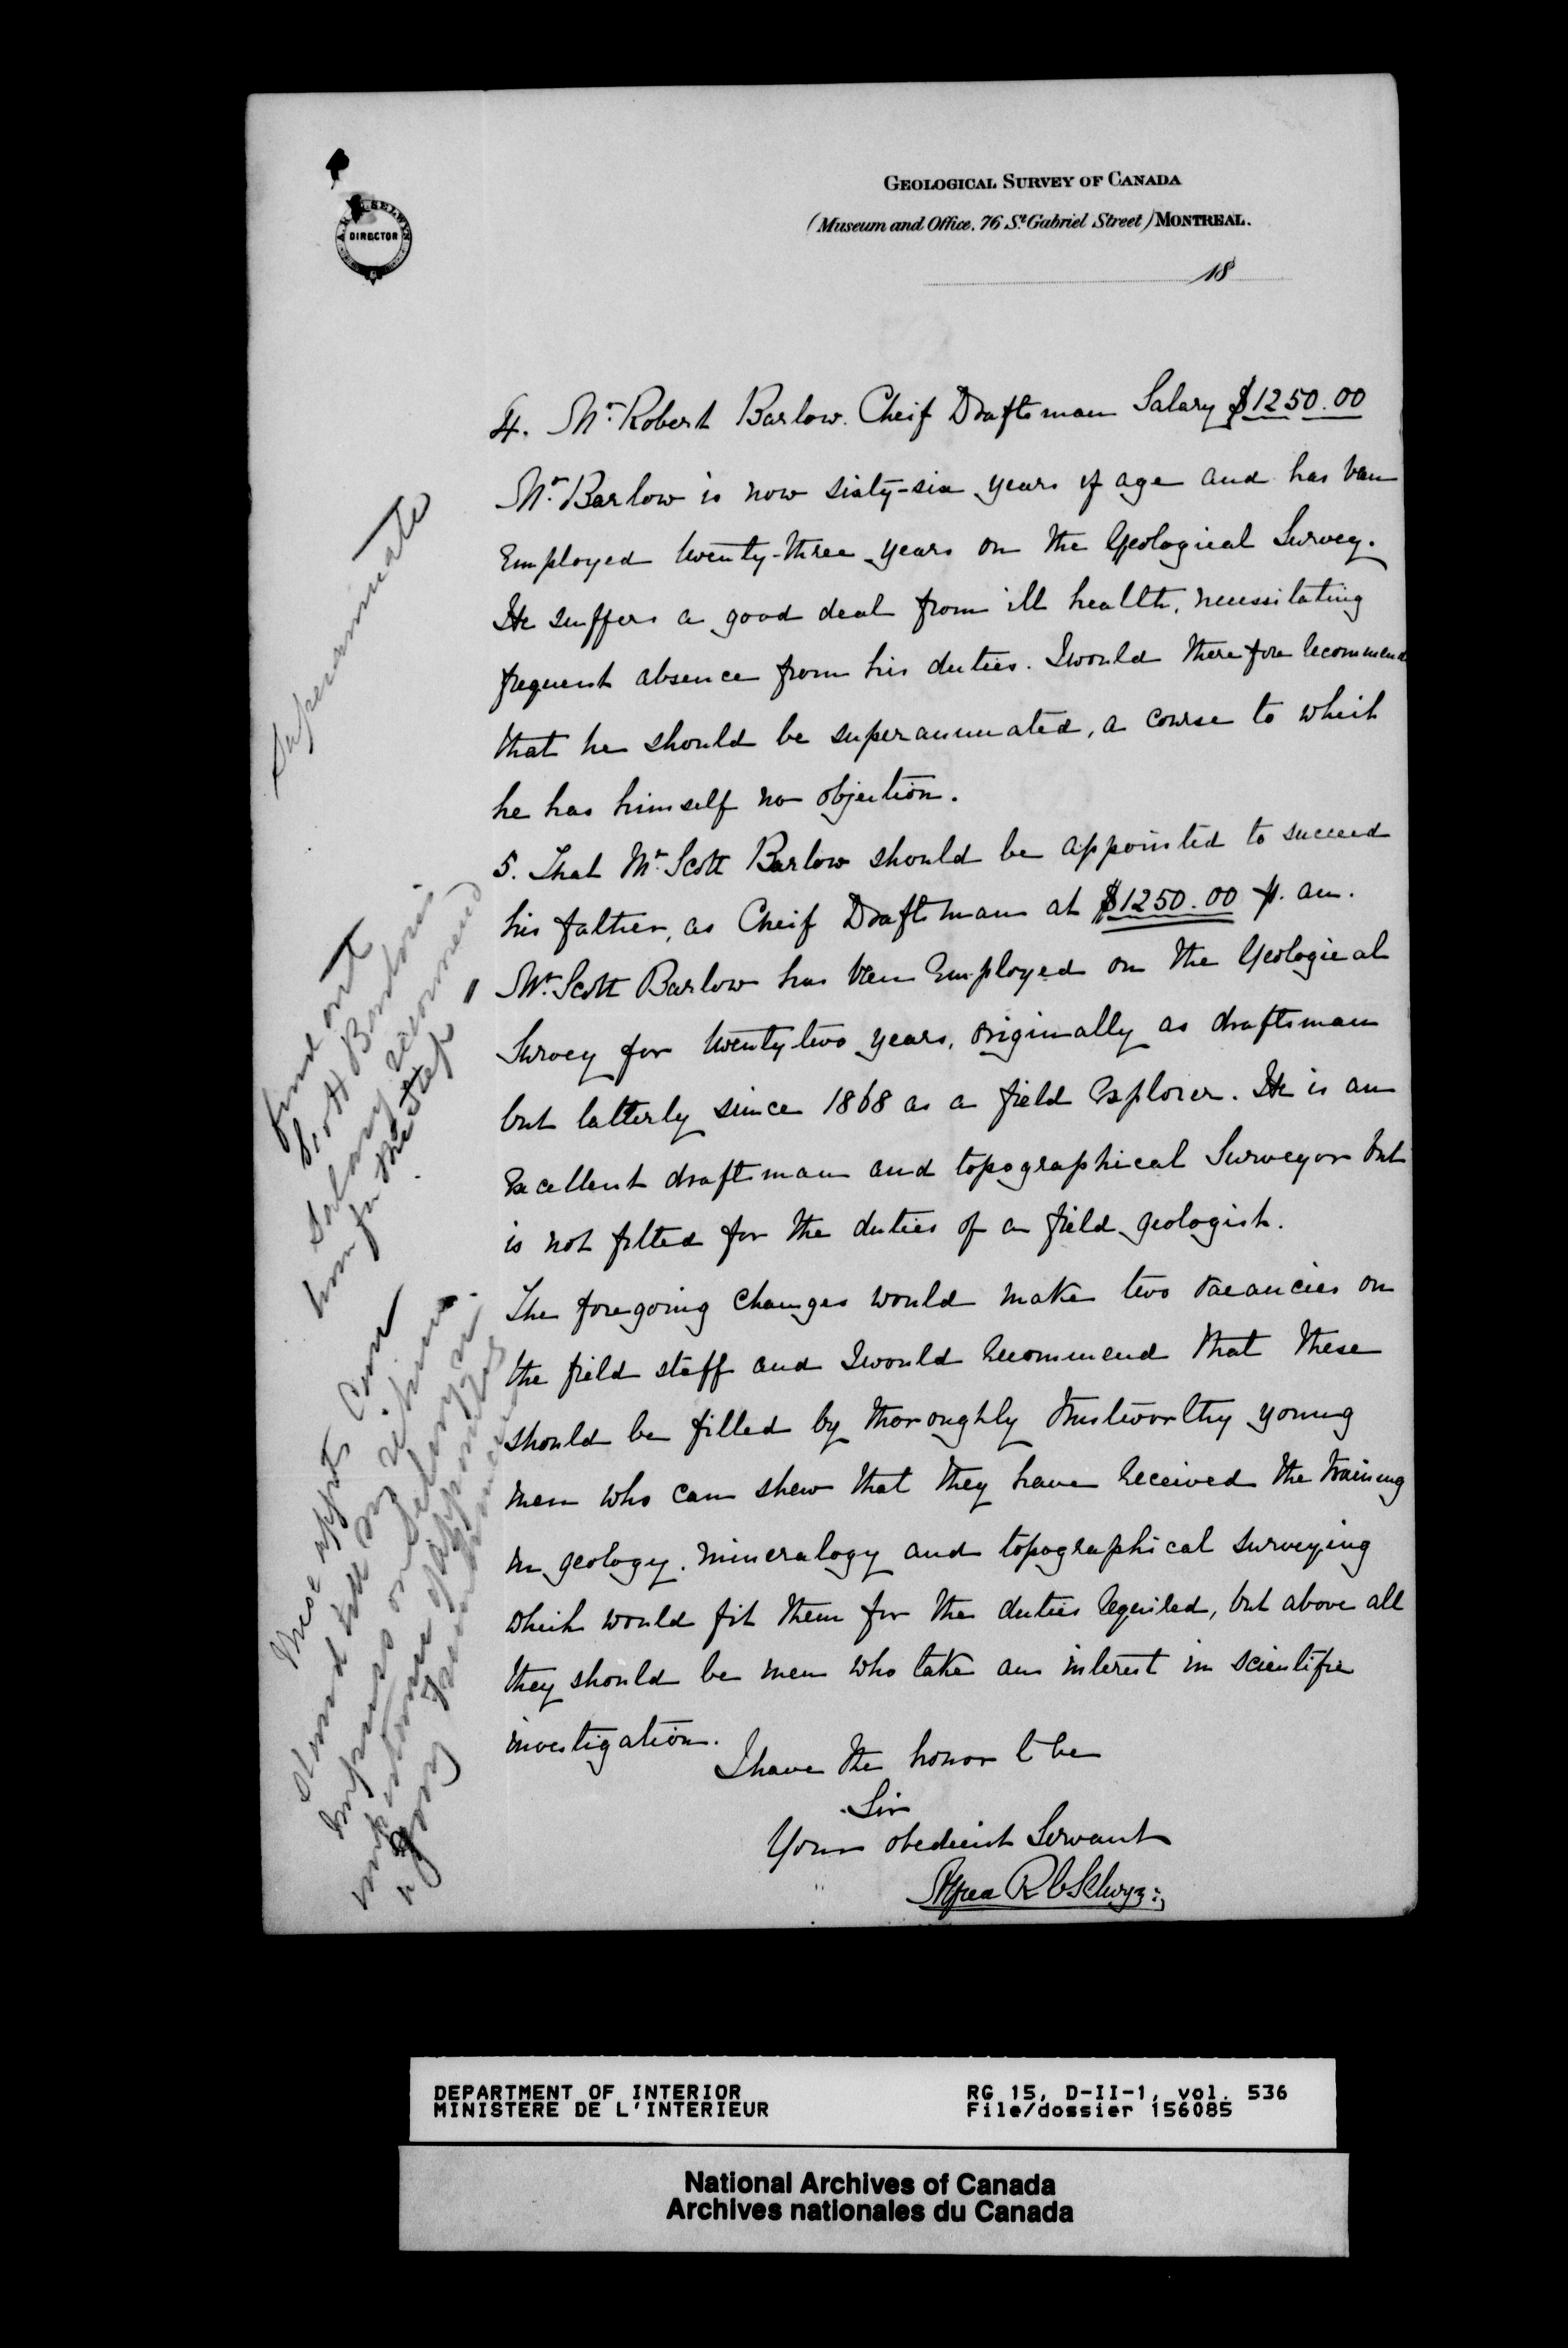 GEOLOGICAL SURVEY OF CANADA
(Museum and Office, 76 St. Gabriel Street) MONTREAL.
18
A.R.C. SELWYN
DIRECTOR
4. Mr. Robert Barlow. Cheif Draftsman Salary $1250.00
Mr. Barlow is now sixty-six years of age and has been
employed twenty-three years on the Geological Survey.
He suffers a good deal from ill health, necessitating
frequent absence from his duties. I would therefore recommend
that he should be superannuated, a course to which
he has himself no objection.
5. That Mr. Scott Barlow should be appointed to succeed
his father, as Cheif Draftsman at $1250.00 p. an.
Mr. Scott Barlow has been employed on the Geological
Survey for twenty two years, originally as draftsman
but latterly since 1868 as a field explorer. He is an
excellent draftsman and topographical Surveyor but
is not fitted for the duties of a field geologist.
The foregoing changes would make two vacancies on
the field staff and I would recommend that these
should be filled by thoroughly trustworthy young
men who can shew that they have received the training
in geology, mineralogy and topographical surveying
which would fit them for the duties required, but above all
they should be men who take an interest in scientific
investigation.
I have the honor to be
Sir
Your obedient Servant
Alfred R C Selwyn
Superannuate
find out
Scott Barlow's
Salary recommend
him for the step
These appts can
stand till my return
on salary
DEPARTMENT OF INTERIOR
MINISTERE DE L'INTERIEUR
RG 15, D-II-1, vol. 536
File/dossier 156085
National Archives of Canada
Archives nationales du Canada